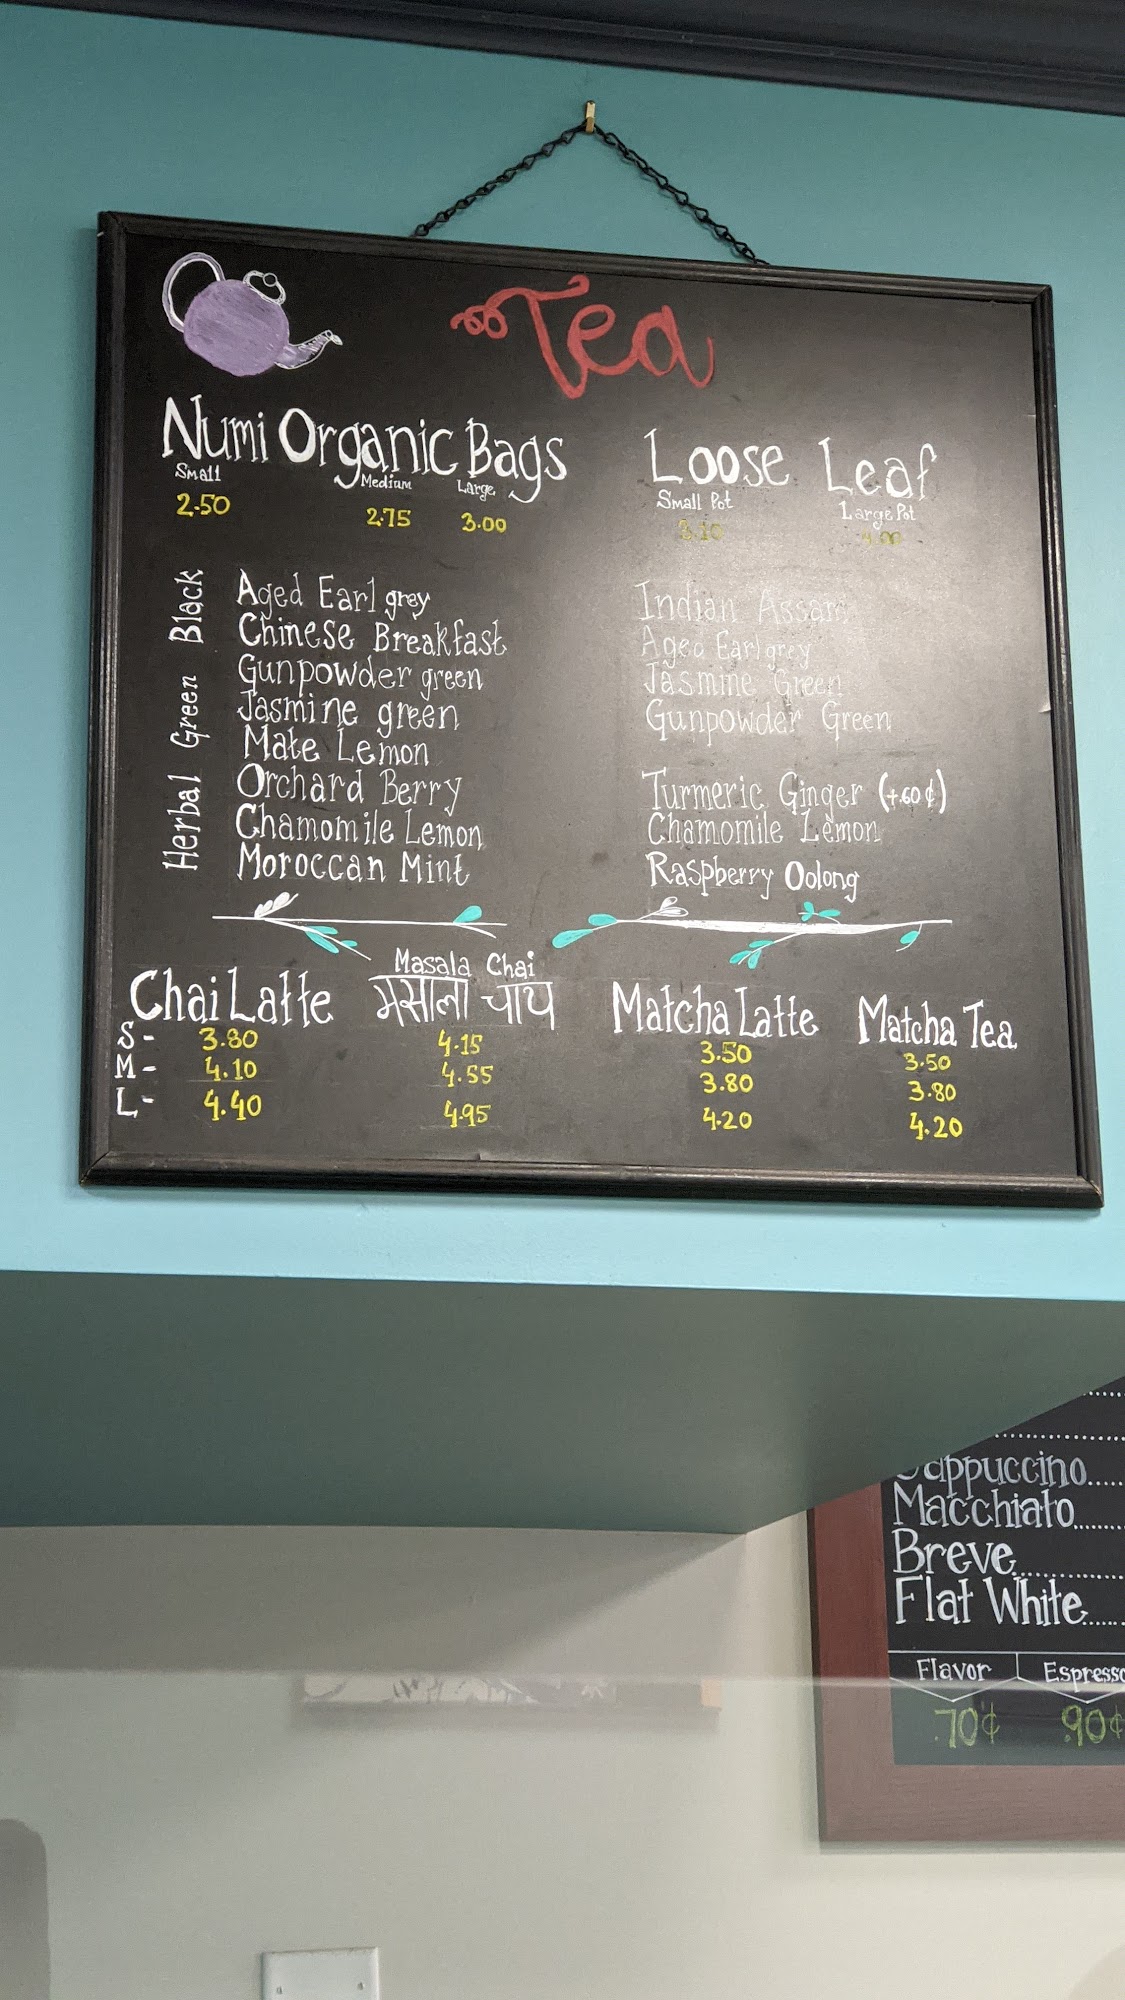 Tea
Numi Organic Bags
Small Medium Large
2.50 2.75 3.00
Black
Green
Herbal
Aged Earl grey
Chinese Breakfast
Gunpowder green
Jasmine green
Mate Lemon
Orchard Berry
Chamomile Lemon
Moroccan Mint
Loose Leaf
Small Pot Large Pot
Indian Assam
Aged Earl grey
Jasmine Green
Gunpowder Green
Turmeric Ginger (+.60¢)
Chamomile Lemon
Raspberry Oolong
Chai Latte
S- 3.80
M- 4.10
L- 4.40
Masala Chai
मसाला चाय
4.15
4.55
4.95
Matcha Latte
3.50
3.80
4.20
Matcha Tea
3.50
3.80
4.20
Cappuccino......
Macchiato.......
Breve...............
Flat White......
Flavor Espresso
.70¢ .90¢